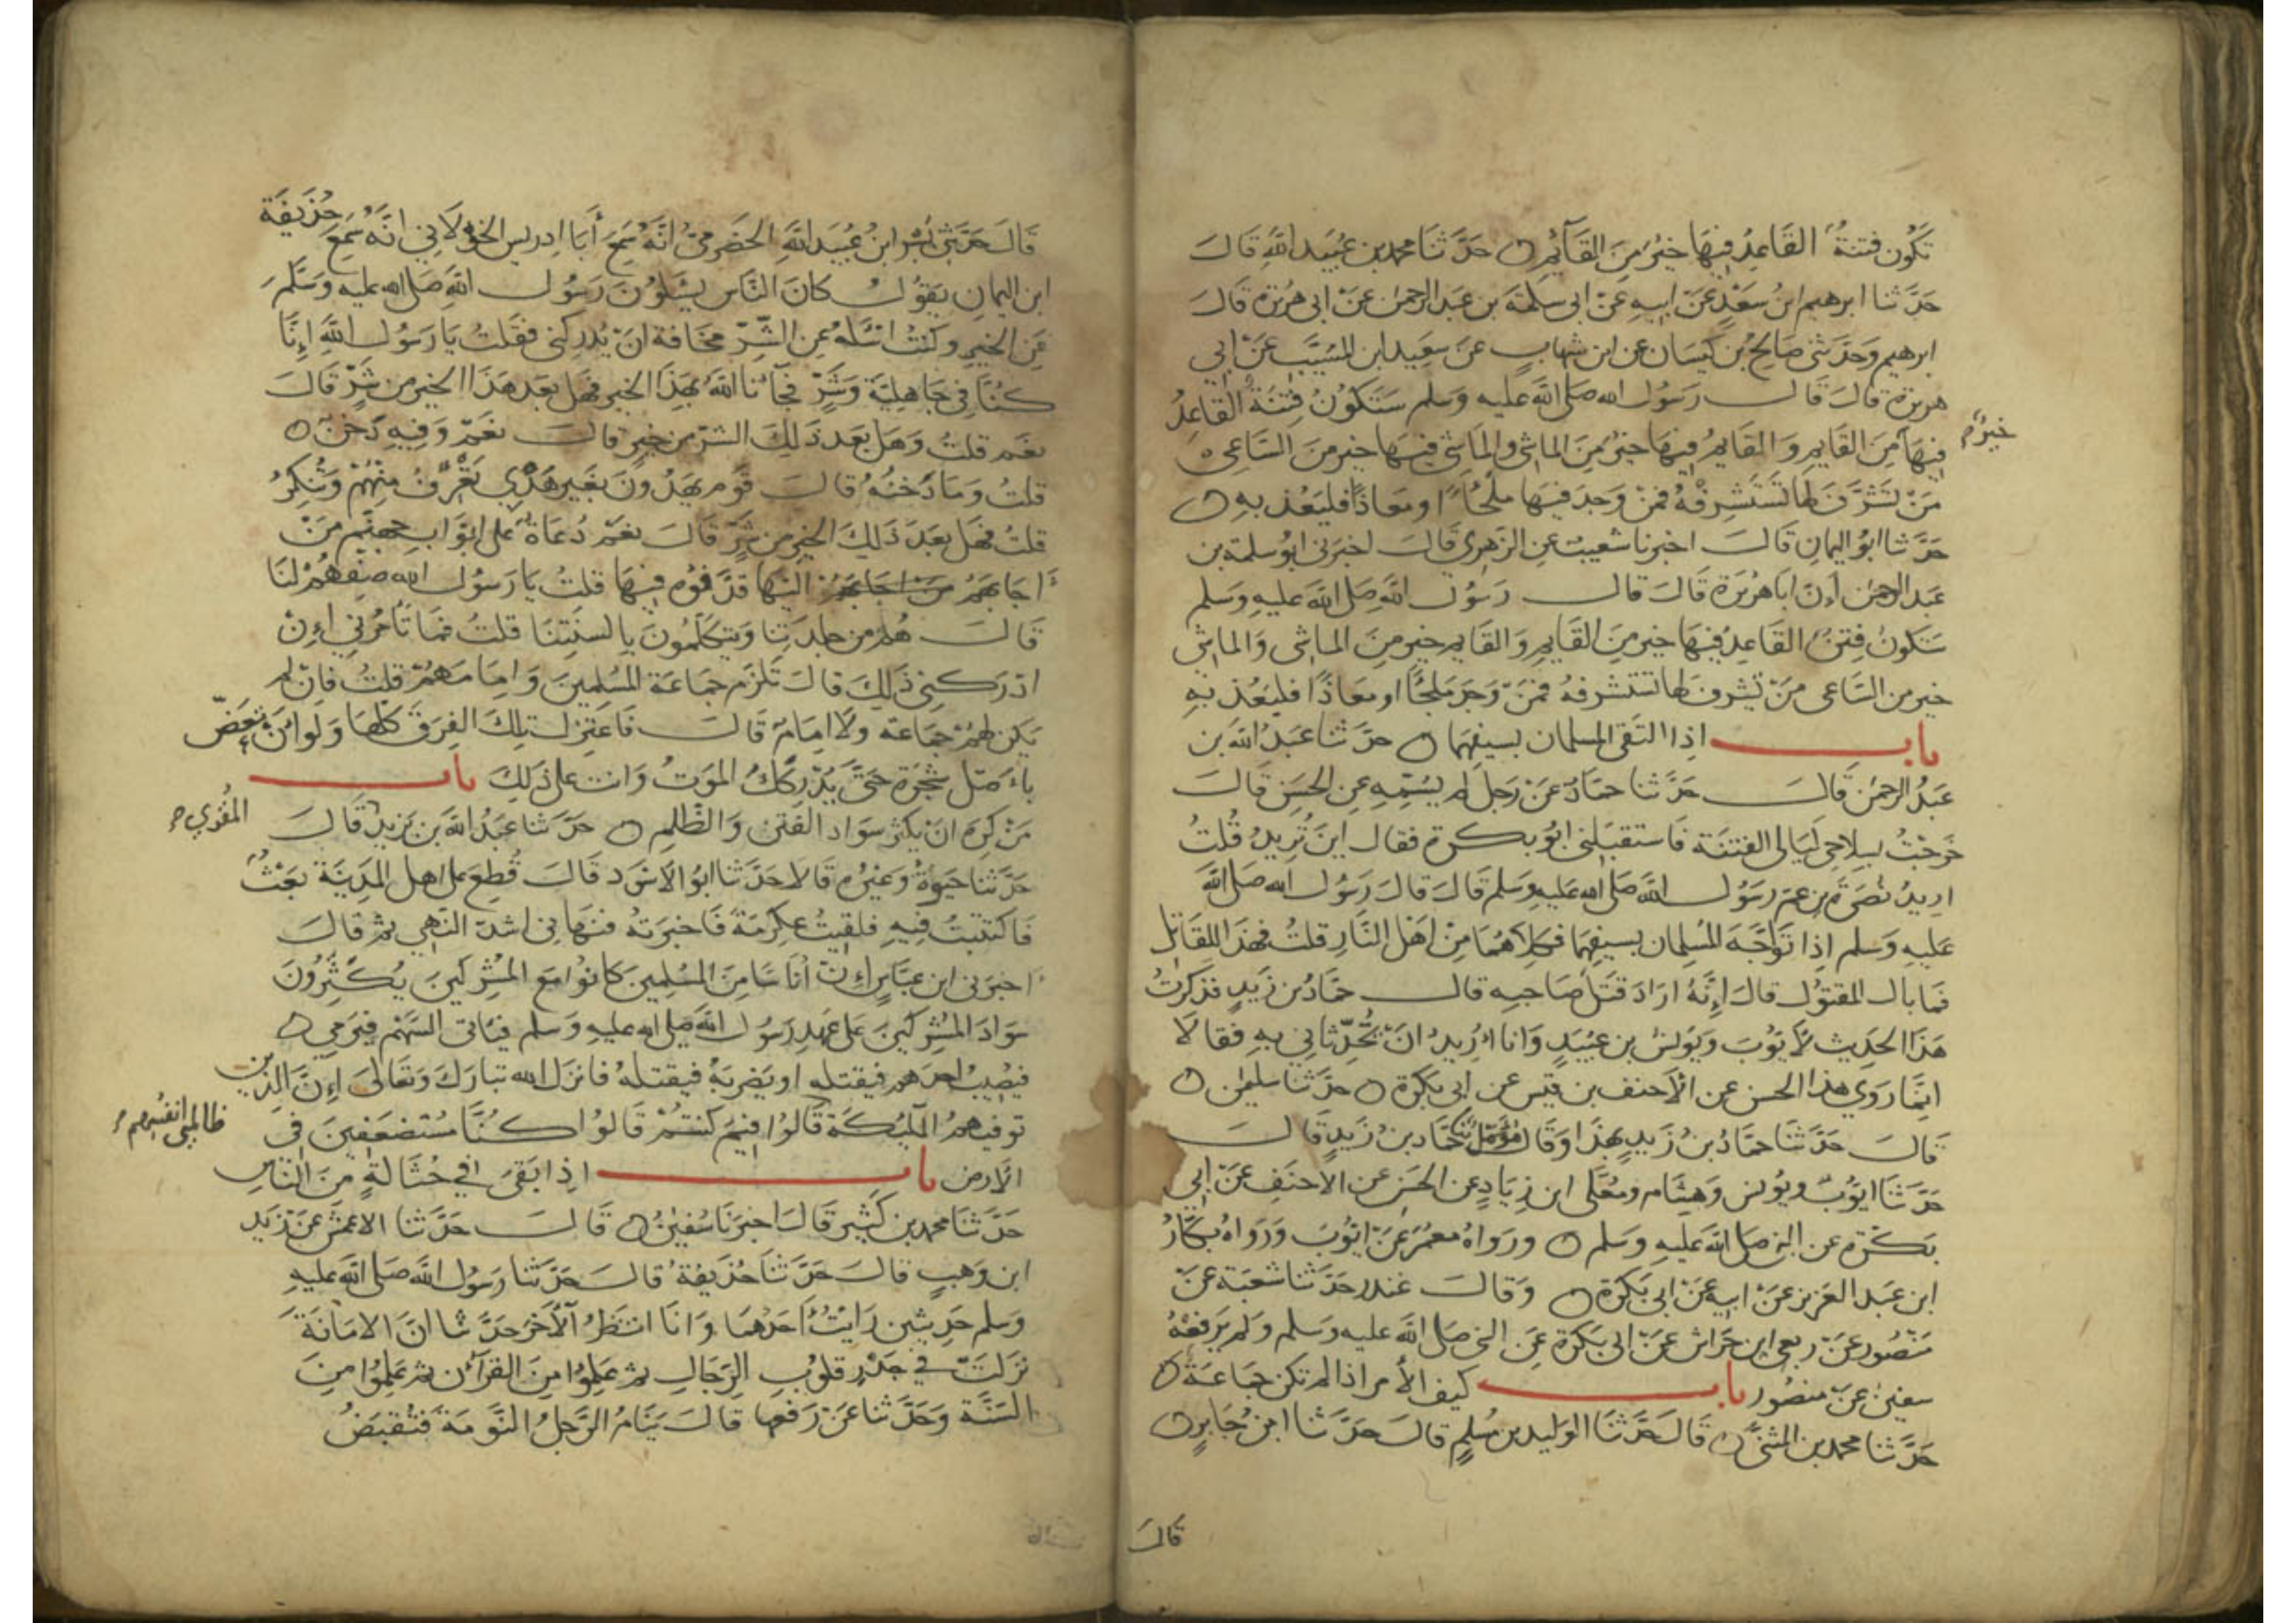 تَكُون فتنةٌ القَاعِدُ فِيهَا خَيْرٌ مِنَ القَآئِمِ ه حَدَّثَنَا محمد بن عُبَيد اللَّهِ قَالَ
حَدَّثنا ابرهيم ابنُ سَعْدٍ عَنْ ابيهِ عَنْ ابى سَلمَة بن عَبد الرحمن عَنْ ابى هُريرة قَالَ
ابرهيم وَحَدَّثنى صَالحُ بن كَيسَان عن ابن شهابٍ عَن سَعِيد ابن المُسَيَّب عَنْ ابي
هريرة قالَ قَالَ رَسُول الله صَلى اللَّه عليه وسلم سَتكوُنُ فِتنَةٌ القَاعِدُ
فِيهَا مِنَ القَايمِ وَالقَايمُ فيهَا خيرٌ مِنَ الماشى والمَاشى فِيهَا خير منَ السَّاعى ه
خيرٌ
مَنْ تَشرَّفَ لها تَسْتَشرِفْهُ فمَنْ وَجدَ فيهَا ملجًأ او معَاذًا فليَعُذ بهِ ه
حَدَّثنا ابوُ اليمانِ قَالَ اخبرنا شعَيبٌ عن الزهرى قَالَ اخبرَنى ابوُ سلمة بن
عَبد الرحمن أنّ ابَا هُريَرَة قَالَ قال رَسُول اللَّهِ صَلى اللَّه عليهِ وَسَلم
سَتكونُ فِتَنٌ القَاعِدُ فيهَا خير مِنَ القَايمِ وَالقَايم خير مِنَ الماشى وَالماشى
خير من السَّاعى مَنْ تَشرف لها تستشرفهُ فمَنْ وَجَدَ مَلجًأ او معَاذًا فليَعُذ بهِ
باب اذِا التَقى المسلمان بسيفِهمَا ه حدَّثنا عَبَدُ اللَّه بن
عَبدُ الرحمن قَالَ حَدَّثنا حمَادٌ عَنْ رَجل لم يسَمّهِ عن الحسَن قَالَ
خرَجتُ بسِلاحِى ليَالى الفتنَة فَاستقبَلنِى ابوُ بكرة فقال اينَ تُريدُ قُلتُ
اريدُ نُصرَة بن عَم رَسوُل اللَّه صَلى الله عَليهِ وَسَلم قَالَ قالَ رَسُول الله صَلى اللَّه
عَليهِ وَسَلم اذِا تَواجَهَ المسُلِمان بسيفهِمَا فكِلاهُمَا مِنْ اهَل النَّارِ قلتُ فهذَا القَاتِل
فمَا بال المقتوُل قالَ إِنَّهُ ارَادَ قتلَ صَاحبِه قال حمَّادُ بن زَيدٍ فذكرتُ
هَذَا الحدِيث لأيوُبَ وَيوُنسُ بن عبُيَدٍ وَانا اُرِيدُ انْ يُحَدِّثانِي بهِ فقالا
انَّمَا رَوَي هذا الحسن عن الأَحنف بن قيس عن ابى بكرة ه حدَّثنا سليمٰن ه
قَالَ حَدَّثَنا حمَّادُ بن زَيدٍ بهَذا وَقَال مُؤمّل ثنا حمَّاد بنُ زَيدٍ قَالَ
حَدَّثَنَا ايوُّبُ ويوُنس وَهِشَام ومعَلى ابن زِيَادٍ عن الحَسَن عن الاحنَفِ عَنْ ابِي
بَكرَة عن النبى صَلى اللَّه عَليهِ وسَلم ه ورَواهُ معمَرٌ عَنْ ايوُّبَ وَرَوَاهُ بكارُ
ابن عَبد العَزيز عَنْ ابيهِ عَنْ ابى بَكرَة ه وَقالَ غندر حَدَّثنا شعبَة عَنْ
مَنْصُور عَنْ ربعى ابن حِرَاش عَنْ ابى بَكرَة عَنِ النبى صَلى اللَّه عليه وسلم وَلم يَرفَعْهُ
سفينُ عَنْ منصُور باب كيف الأمر اذا لم تكن جَماعَة ه
حَدَّثنا محمد بن المثنى ه قَالَ حَدَّثنَا الوَليد بن مُسْلمٍ قالَ حَدَّثنا ابنُ جَابرٍ ه
قَالَ
قَالَ حَدَّثنى بُسْر ابنُ عُبيَد اللَّهِ الحَضرَمىُّ انَّهُ سَمِعَ أَبَا ادِريس الخوْلاَنِي انَّهُ سَمِعَ حُذَيفَة
ابن اليمانِ يَقوُلُ كانَ النَّاس يَسْئلوُنَ رَسُول اللَّهِ صَلى الله عليه وَسَلَّمَ
عَنِ الخيرِ وكنتُ اسْئلهُ عنِ الشّرِّ مخَافة انْ يُدرِكنى فقلتُ يَا رَسُول اللَّهِ إنَّا
كُنَّا فِى جَاهِليّة وَشَرٍّ فجَآئَنا اللَّهُ بهَذَا الخير فهَل بعَد هَذَا الخير من شَرٍّ قَالَ
نَعَم قلتُ وَهَل بَعَد ذَلِكَ الشرّ من خير قالَ نعَمْ وَفيِهِ دَخَنٌ ه
قلتُ وَمَا دَخنُهُ قالَ قَوْم يهَدُونَ بغَير هَدْيي تَعْرِفُ مِنْهُمْ وَتُنْكِرُ
قلتُ فهَل بعَدَ ذَلِكَ الخيرِ من شَرٍّ قَالَ نعَمْ دُعَاةٌ على ابوَاب جهنَّم مَنْ
اَجَابَهُمْ من اجابهم اليْهَا قذَفوُه فيهَا قلتُ يَا رَسُول الله صِفْهُمْ لنَا
قَالَ هُم من جلدَتِنا وَيتكَلّمُونَ بِالسنَتِنَا قلتُ فمَا تَأمُرنِي إنْ
ادْرَكنِى ذَلِكَ قالَ تَلزَم جَمَاعَة المُسْلِمِينَ وَامِامَهُمْ قلتُ فَإنْ لم
يَكن لهَمْ جَمَاعَة ولاَ امِامٌ قَالَ فَاعتَزِل تلِكَ الفِرَقَ كلهَا وَلوَ أنْ تعَضّ
بأصْل شجَرَة حَتى يُدْركَكَ المَوَتُ وَانت على ذلِكَ باب
مَنْ كَرهَ انْ يُكثرَ سوَاد الفتن وَالظّلم ه حدَّثنا عَبدُ اللَّه بن يَزيد قَالَ
المقُري
حَدَّثنا حَيَوةُ وَغيرُه قَالا حَدَّثنا ابوُ الاسْوَد قَالَ قُطِعَ على اهل المَدِينَة بَعْثٌ
فَاكتتبتُ فِيهِ فلقيِتُ عِكرمَة فَاخبرَتهُ فنهَانِى اشدّ النَّهى ثم قالَ
اَخبرَنى ابن عبَّاسٍ اِنّ اُنَاسًا مِنَ المسُلِمِينَ كانوُا مَع المُشْركيِنَ يُكَثِّرُونَ
سوَادَ المُشْركيِنَ على عَهدِ رَسُول اللَّه صَلى الله عليهِ وَسَلم فيَاتى السَّهْم فيرْمِي ه
فيصُيِبُ احدَهم فيقتله او يَضربَهُ فيقَتلهُ فانزَل الله تبارَكَ وَتعَالىَ إنَّ الذِينَ
توفيهمُ الملئِكةَ قَالوُا فيمَ كنتمُ قَالوُا كنَّا مُسْتضعَفِينَ فى
ظالمي انفسُهم
الأَرض باب اذِا بَقىَ في حُثَالةٍ مِنَ النَّاسِ
حَدَّثنَا محمد بن كثِير قَالَ اخبرَنَا سُفينُ ه قَالَ حَدَّثنا الاعمَش عَنْ زَيدِ
ابن وَهبٍ قالَ حَدَّثنَا حُذَيفَةُ قالَ حَدَّثنا رَسُول اللَّه صَلى اللَّه عليهِ
وَسَلم حَدِيثين رَايتُ اَحَدَهُمَا وَانَا انتظرُ الآخَرَ حدَّثنا انَّ الامَانَةَ
نَزلَتْ في جَذرِ قلوُبِ الرّجَالِ ثم عَلِمُوا مِنَ القرآنِ ثم عَلِمُوا مِنَ
السَنَّة وَحَدَّثنا عَنْ رَفعها قالَ يَنَامُ الرَّجُلُ النَّومَة فَتُقبَضُ